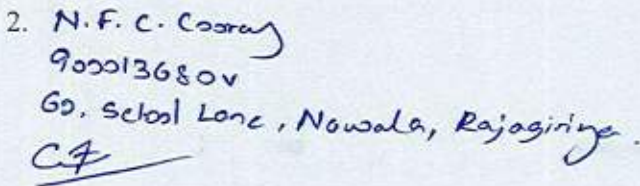 2. N. F. C. Cooray
900013680V
60, School Lane, Nawala, Rajagiriya.